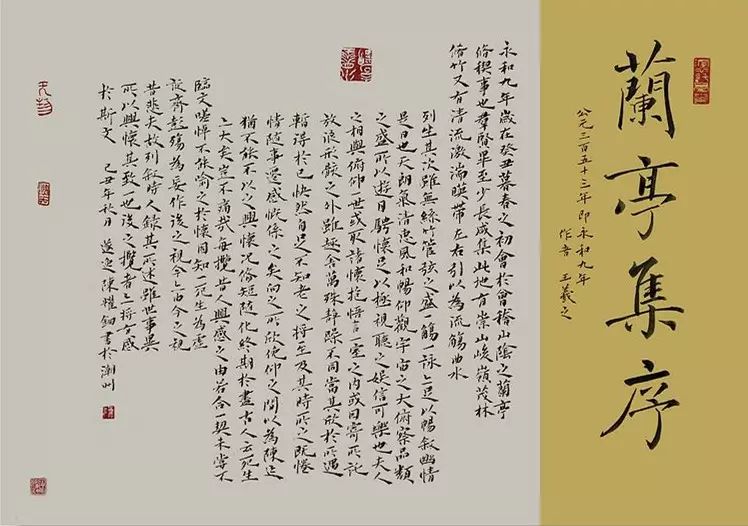 蘭亭集序
公元三百五十三年即永和九年
作者 王羲之
永和九年歲在癸丑暮春之初會於會稽山陰之蘭亭
脩稧事也羣賢畢至少長咸集此地有崇山峻嶺茂林
脩竹又有清流激湍暎帶左右引以為流觴曲水
列坐其次雖無絲竹管弦之盛一觴一詠亦足以暢敘幽情
是日也天朗氣清惠風和暢仰觀宇宙之大俯察品類
之盛所以遊目騁懷足以極視聽之娛信可樂也夫人
之相與俯仰一世或取諸懷抱悟言一室之內或因寄所託
放浪形骸之外雖趣舍萬殊靜躁不同當其欣於所遇
暫得於己快然自足不知老之將至及其時所之既惓
情隨事遷感慨係之矣向之所欣俛仰之間以為陳迹
猶不能不以之興懷況脩短隨化終期於盡古人云死生
亦大矣豈不痛哉每攬昔人興感之由若合一契未嘗不
臨文嗟悼不能喻之於懷固知一死生為虛
誕齊彭殤為妄作後之視今亦由今之視
昔悲夫故列敘時人錄其所述雖世事異
所以興懷其致一也後之攬者亦將有感
於斯文 己丑年秋月 陳耀書於潮州